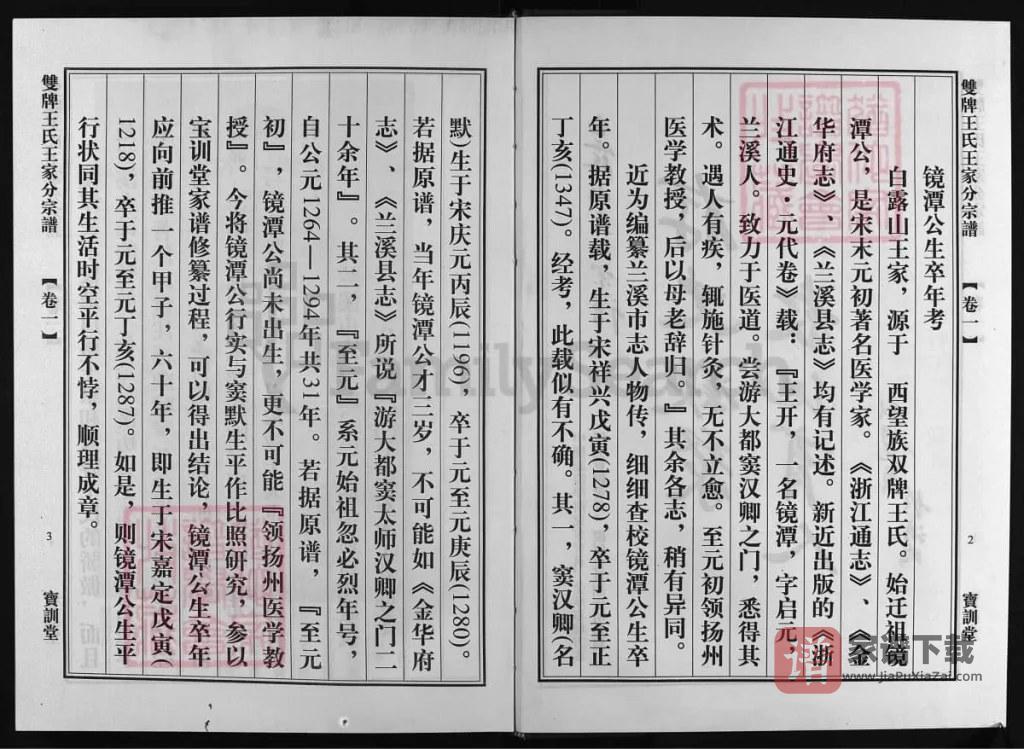 雙牌王氏王家分宗譜 【卷一】 2 寶訓堂
镜潭公生卒年考
白露山王家，源于 西望族双牌王氏。始迁祖镜
潭公，是宋末元初著名医学家。《浙江通志》、《金
华府志》、《兰溪县志》均有记述。新近出版的《浙
江通史·元代卷》载：『王开，一名镜潭，字启元，
兰溪人。致力于医道。尝游大都窦汉卿之门，悉得其
术。遇人有疾，辄施针灸，无不立愈。至元初领扬州
医学教授，后以母老辞归。』其余各志，稍有异同。
近为编纂兰溪市志人物传，细细查校镜潭公生卒
年。据原谱载，生于宋祥兴戊寅(1278)，卒于元至正
丁亥(1347)。经考，此载似有不确。其一，窦汉卿(名
默)生于宋庆元丙辰(1196)，卒于元至元庚辰(1280)。
若据原谱，当年镜潭公才三岁，不可能如《金华府
志》、《兰溪县志》所说『游大都窦太师汉卿之门二
十余年』。其二，『至元』系元始祖忽必烈年号，
自公元1264—1294年共31年。若据原谱，『至元
初』，镜潭公尚未出生，更不可能『领扬州医学教
授』。今将镜潭公行实与窦默生平作比照研究，参以
宝训堂家谱修纂过程，可以得出结论，镜潭公生卒年
应向前推一个甲子，六十年，即生于宋嘉定戊寅(
1218)，卒于元至元丁亥(1287)。如是，则镜潭公生平
行状同其生活时空平行不悖，顺理成章。
雙牌王氏王家分宗譜 【卷一】 3 寶訓堂
FamilySearch
家谱下载
www.JiaPuXiaZai.com